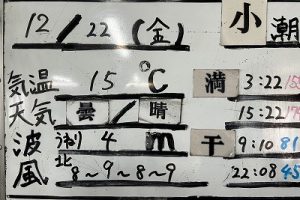 12 / 22 (金) 小潮
気温 15 ℃ 満 3:22 15
天気 曇 / 晴 15:22 17
波 うねり 4 m 干 9:10 81
風 北 8～9～8～9 22:08 45